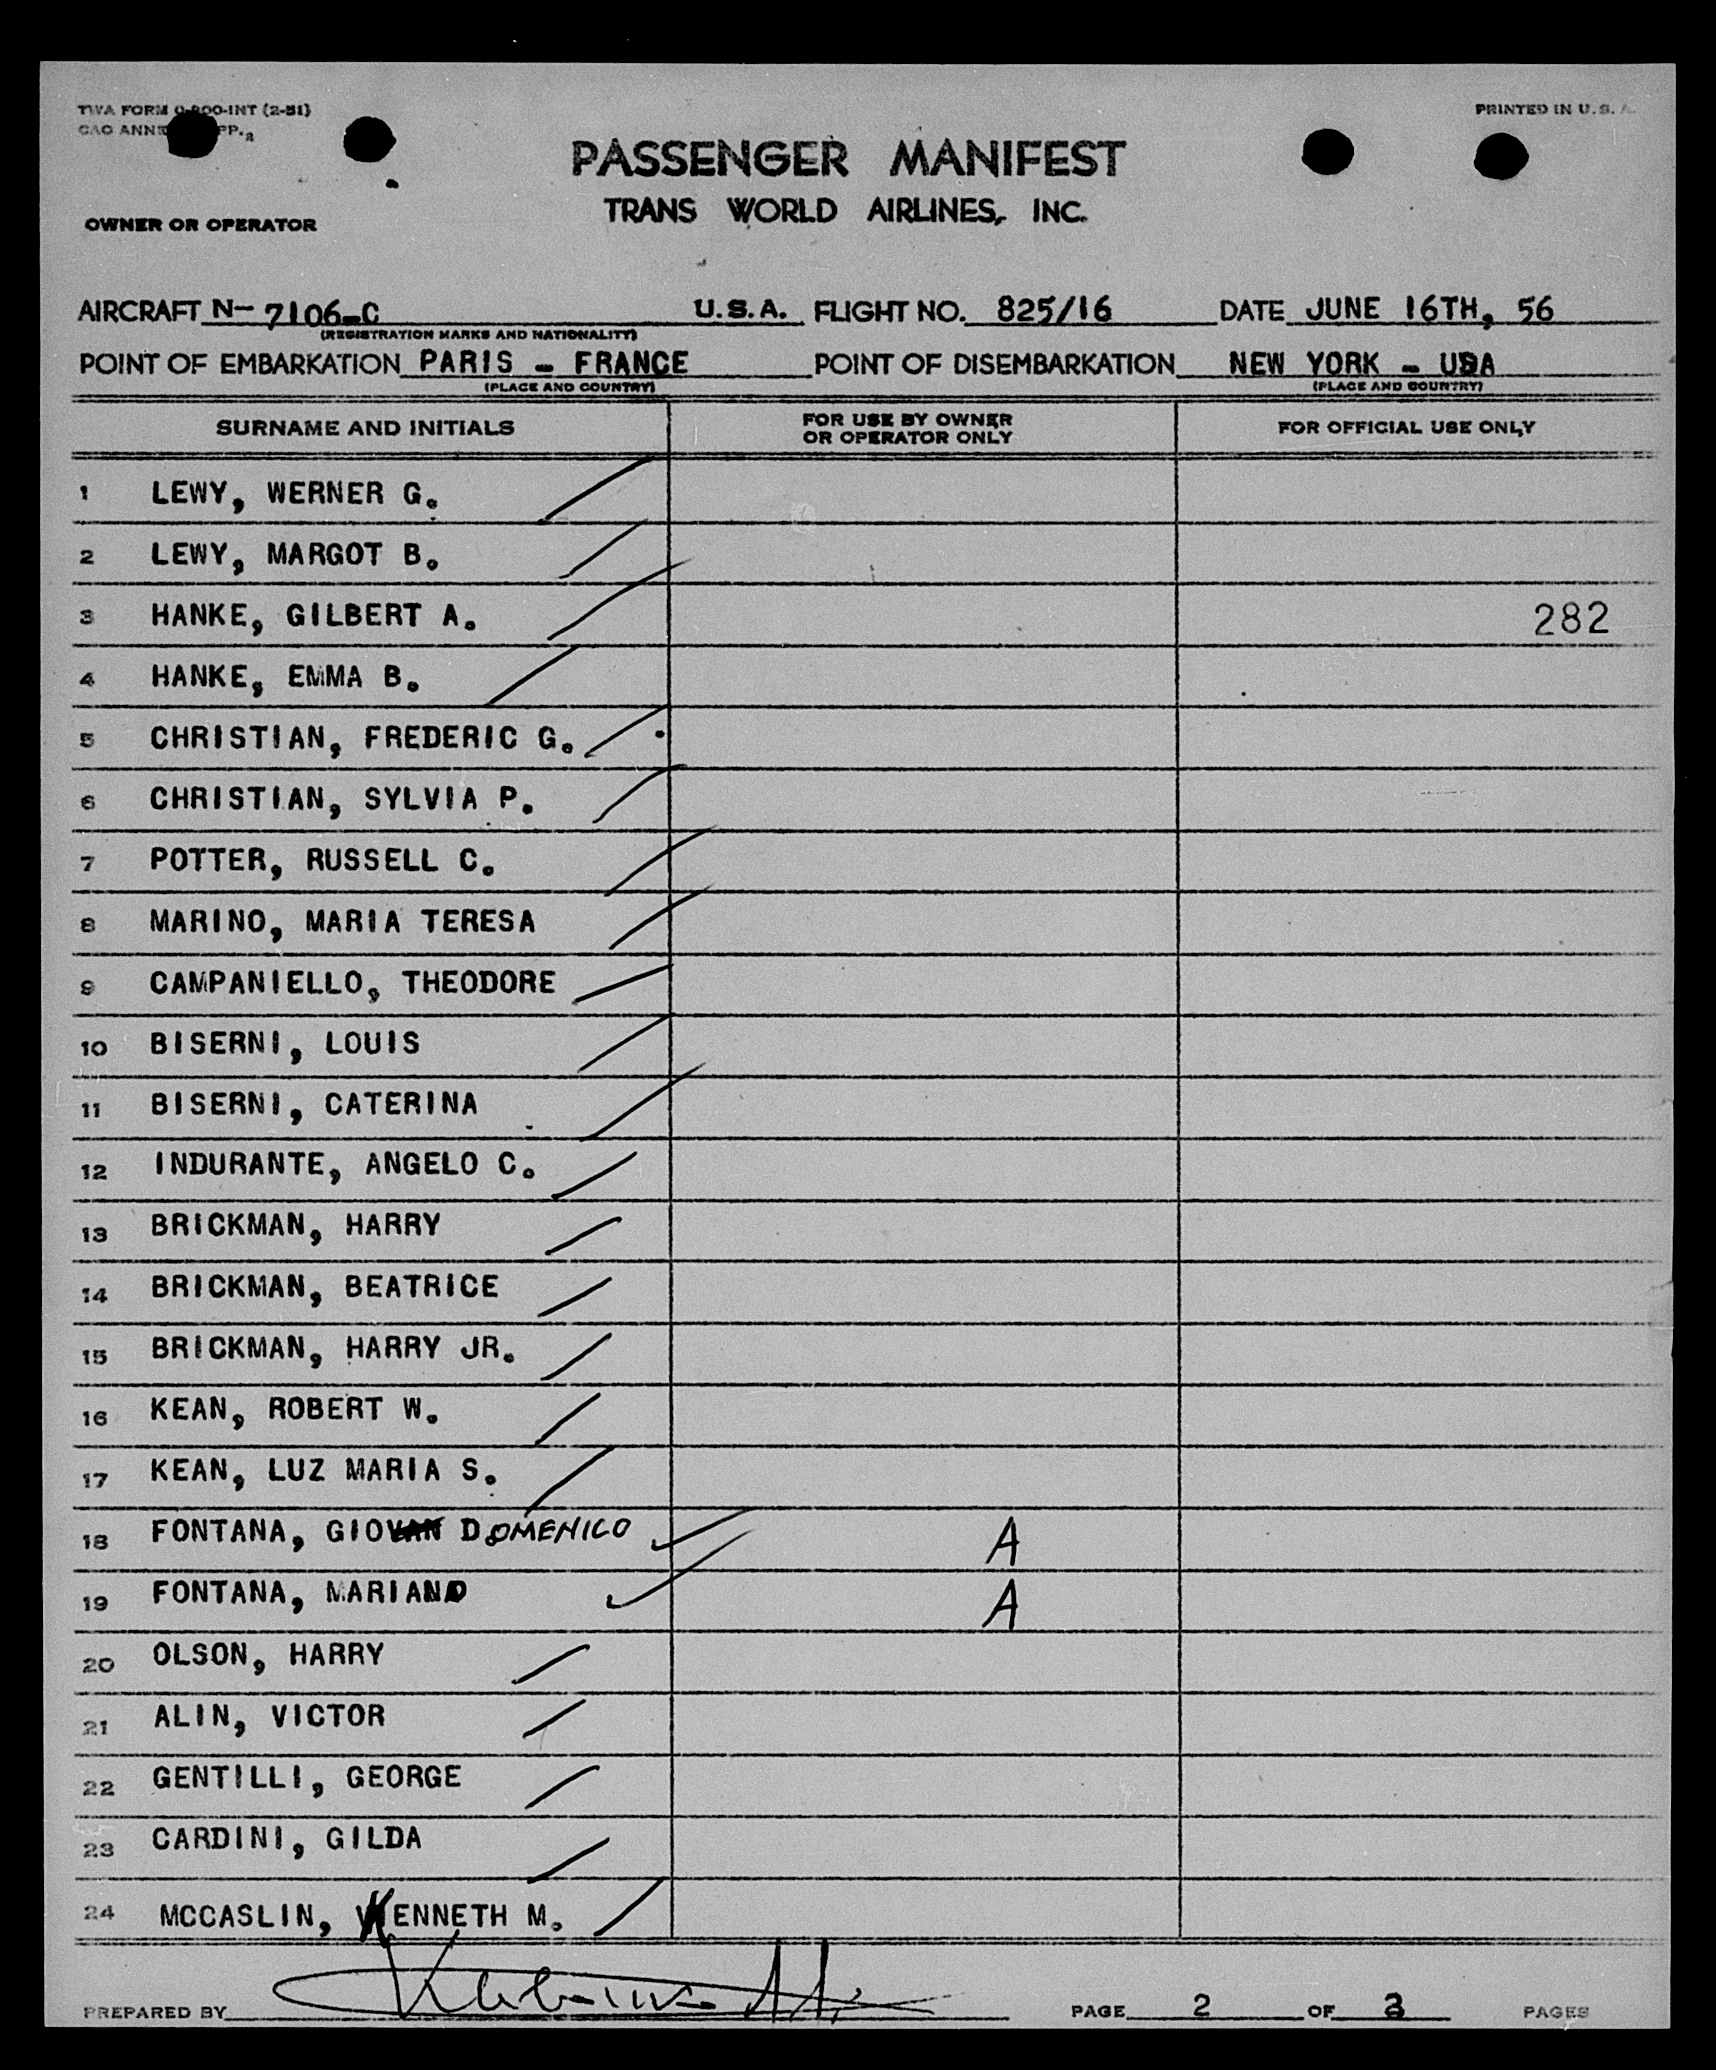 TWA FORM O-200-INT (2-51)
PRINTED IN U.S.A.
PASSENGER MANIFEST
TRANS WORLD AIRLINES, INC.
OWNER OR OPERATOR
AIRCRAFT N- 7106-C U.S.A. FLIGHT NO. 825/16 DATE JUNE 16TH, 56
(REGISTRATION MARKS AND NATIONALITY)
POINT OF EMBARKATION PARIS - FRANCE POINT OF DISEMBARKATION NEW YORK - USA
(PLACE AND COUNTRY) (PLACE AND COUNTRY)
SURNAME AND INITIALS FOR USE BY OWNER OR OPERATOR ONLY FOR OFFICIAL USE ONLY
1 LEWY, WERNER G.
2 LEWY, MARGOT B.
3 HANKE, GILBERT A. 282
4 HANKE, EMMA B.
5 CHRISTIAN, FREDERIC G.
6 CHRISTIAN, SYLVIA P.
7 POTTER, RUSSELL C.
8 MARINO, MARIA TERESA
9 CAMPANIELLO, THEODORE
10 BISERNI, LOUIS
11 BISERNI, CATERINA
12 INDURANTE, ANGELO C.
13 BRICKMAN, HARRY
14 BRICKMAN, BEATRICE
15 BRICKMAN, HARRY JR.
16 KEAN, ROBERT W.
17 KEAN, LUZ MARIA S.
18 FONTANA, GIOVAN DOMENICO A
19 FONTANA, MARIANO A
20 OLSON, HARRY
21 ALIN, VICTOR
22 GENTILLI, GEORGE
23 CARDINI, GILDA
24 MCCASLIN, KENNETH M.
PREPARED BY PAGE 2 OF 3 PAGES